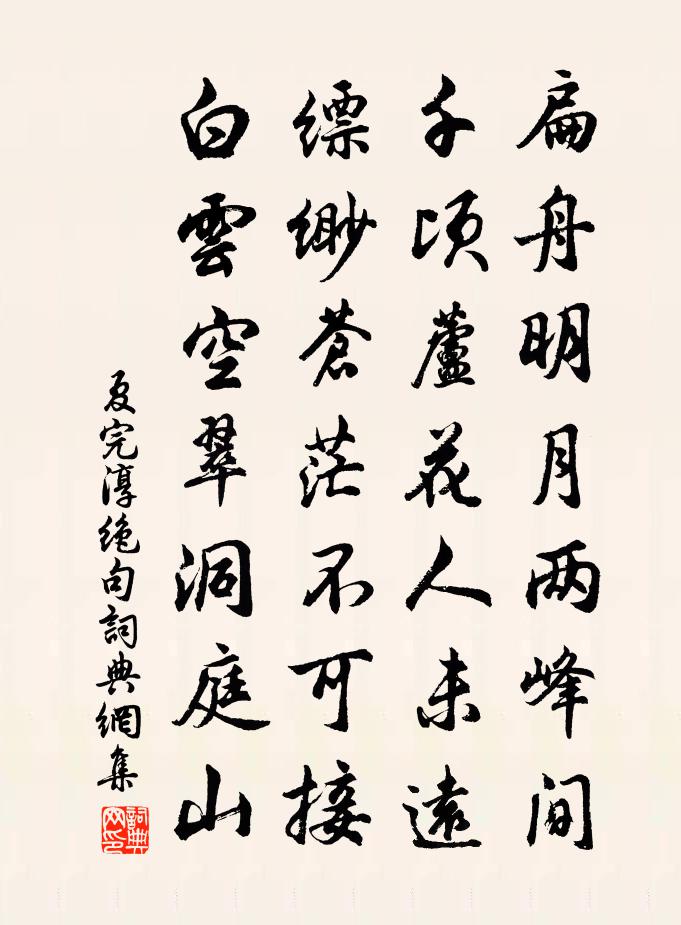 扁舟明月两峰间
千顷蘆花人未遠
缥缈苍茫不可接
白雲空翠洞庭山
夏完淳绝句詞典網集
詞典网印